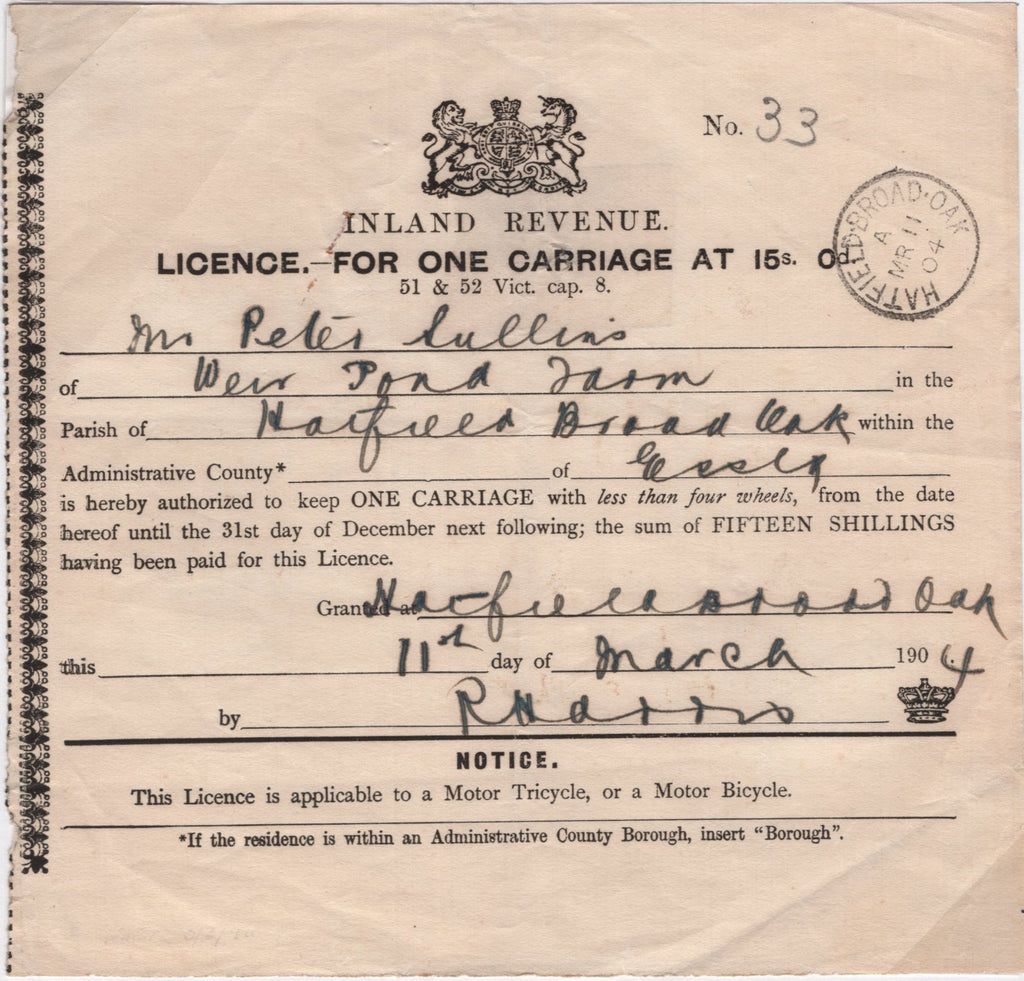 No. 33
HATFIELD·BROAD·OAK
A
MR 11
04
INLAND REVENUE.
LICENCE.—FOR ONE CARRIAGE AT 15s. 0d.
51 & 52 Vict. cap. 8.
Mr Peter Sullins
of Weir Pond Farm in the
Parish of Hatfield Broad Oak within the
Administrative County* of Essex
is hereby authorized to keep ONE CARRIAGE with less than four wheels, from the date
hereof until the 31st day of December next following; the sum of FIFTEEN SHILLINGS
having been paid for this Licence.
Granted at Hatfield Broad Oak
this 11th day of March 1904
by R Harris
NOTICE.
This Licence is applicable to a Motor Tricycle, or a Motor Bicycle.
*If the residence is within an Administrative County Borough, insert "Borough".